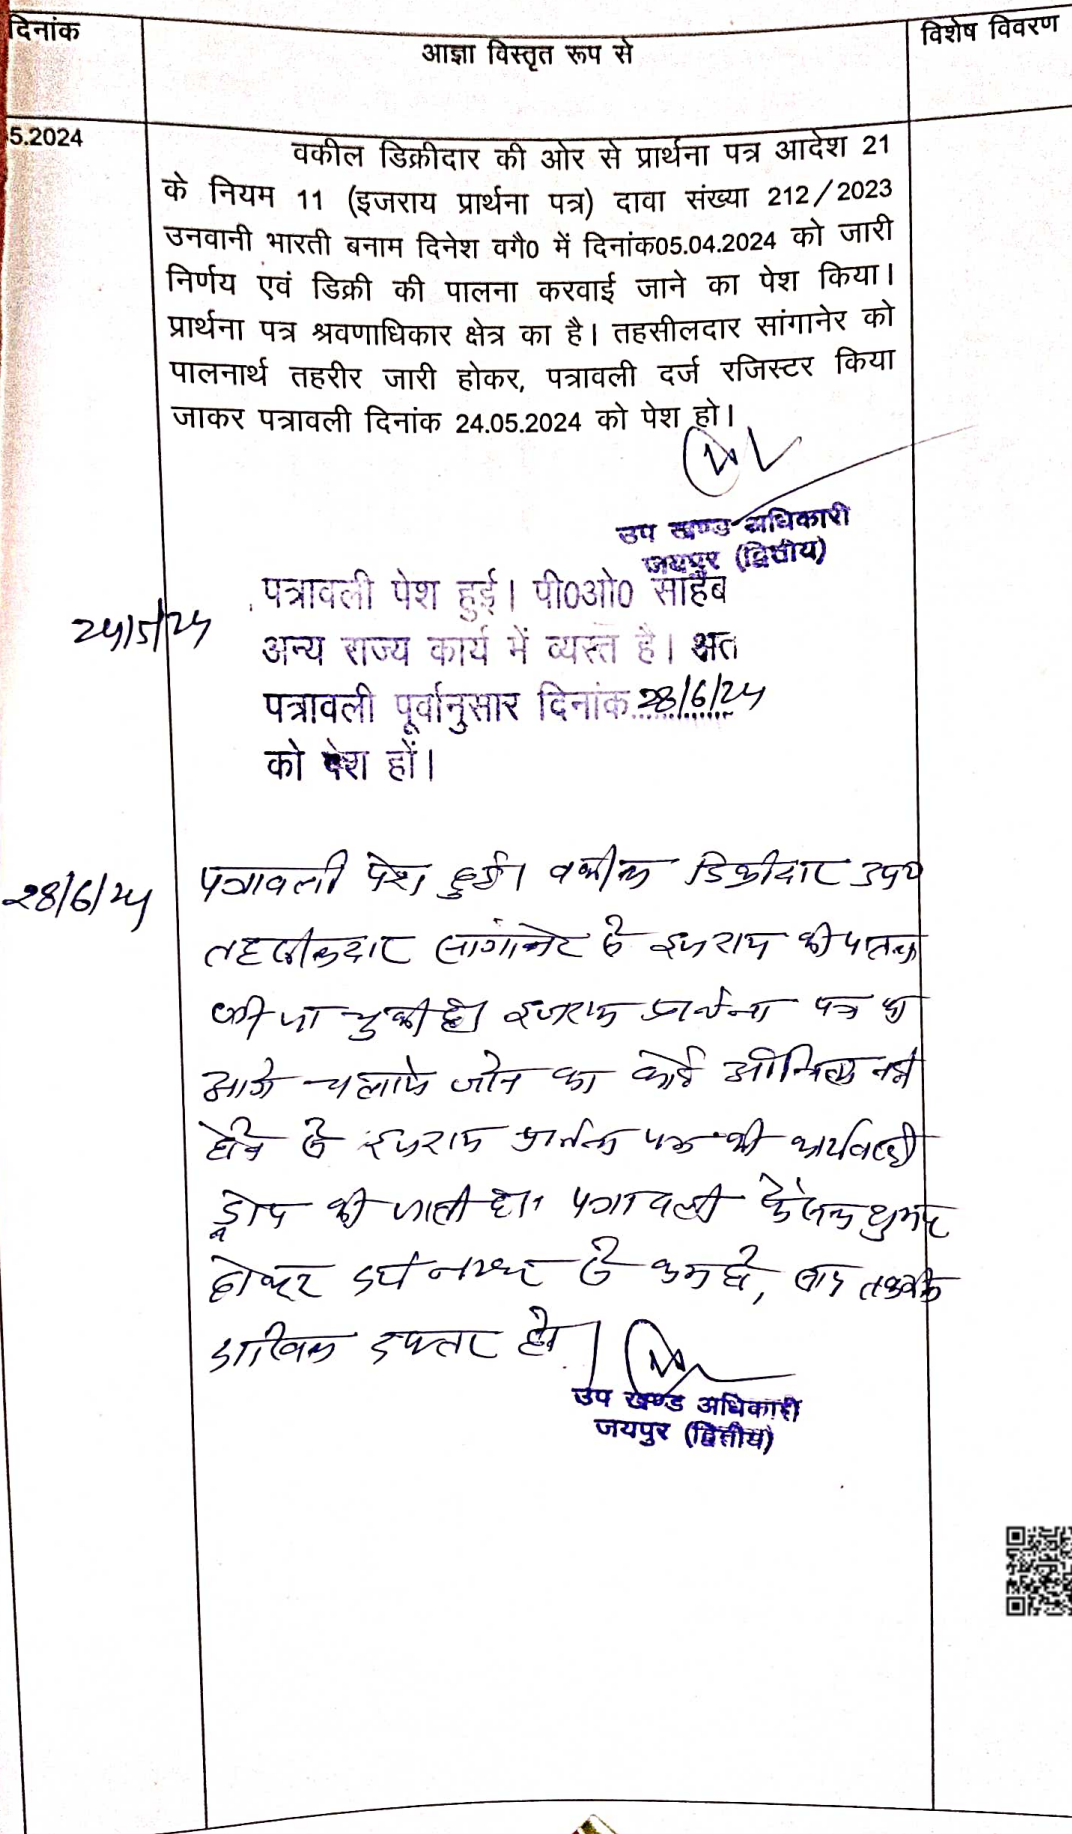 दिनांक
आज्ञा विस्तृत रूप से
विशेष विवरण
5.2024
वकील डिक्रीदार की ओर से प्रार्थना पत्र आदेश 21
के नियम 11 (इजराय प्रार्थना पत्र) दावा संख्या 212/2023
उनवानी भारती बनाम दिनेश वगै0 में दिनांक05.04.2024 को जारी
निर्णय एवं डिक्री की पालना करवाई जाने का पेश किया।
प्रार्थना पत्र श्रवणाधिकार क्षेत्र का है। तहसीलदार सांगानेर को
पालनार्थ तहरीर जारी होकर, पत्रावली दर्ज रजिस्टर किया
जाकर पत्रावली दिनांक 24.05.2024 को पेश हो।
उप खण्ड अधिकारी
जयपुर (द्वितीय)
24/5/24
पत्रावली पेश हुई। पी0ओ0 साहेब
अन्य राज्य कार्य में व्यस्त है। अत
पत्रावली पूर्वानुसार दिनांक 28/6/24
को पेश हों।
28/6/24
पत्रावली पेश हुई। वकील डिक्रीदार उप०
तहसीलदार सांगानेर से इजराय की पालना
की जा चुकी है। इजराय प्रार्थना पत्र को
आगे चलाये जाने का कोई औचित्य नहीं
होने से इजराय प्रार्थना पत्र की कार्यवाही
ड्रोप की जाती है। पत्रावली फैसल शुमार
होकर दर्ज नम्बर से कम हो, बाद तकमील
दाखिल दफ्तर हो।
उप खण्ड अधिकारी
जयपुर (द्वितीय)